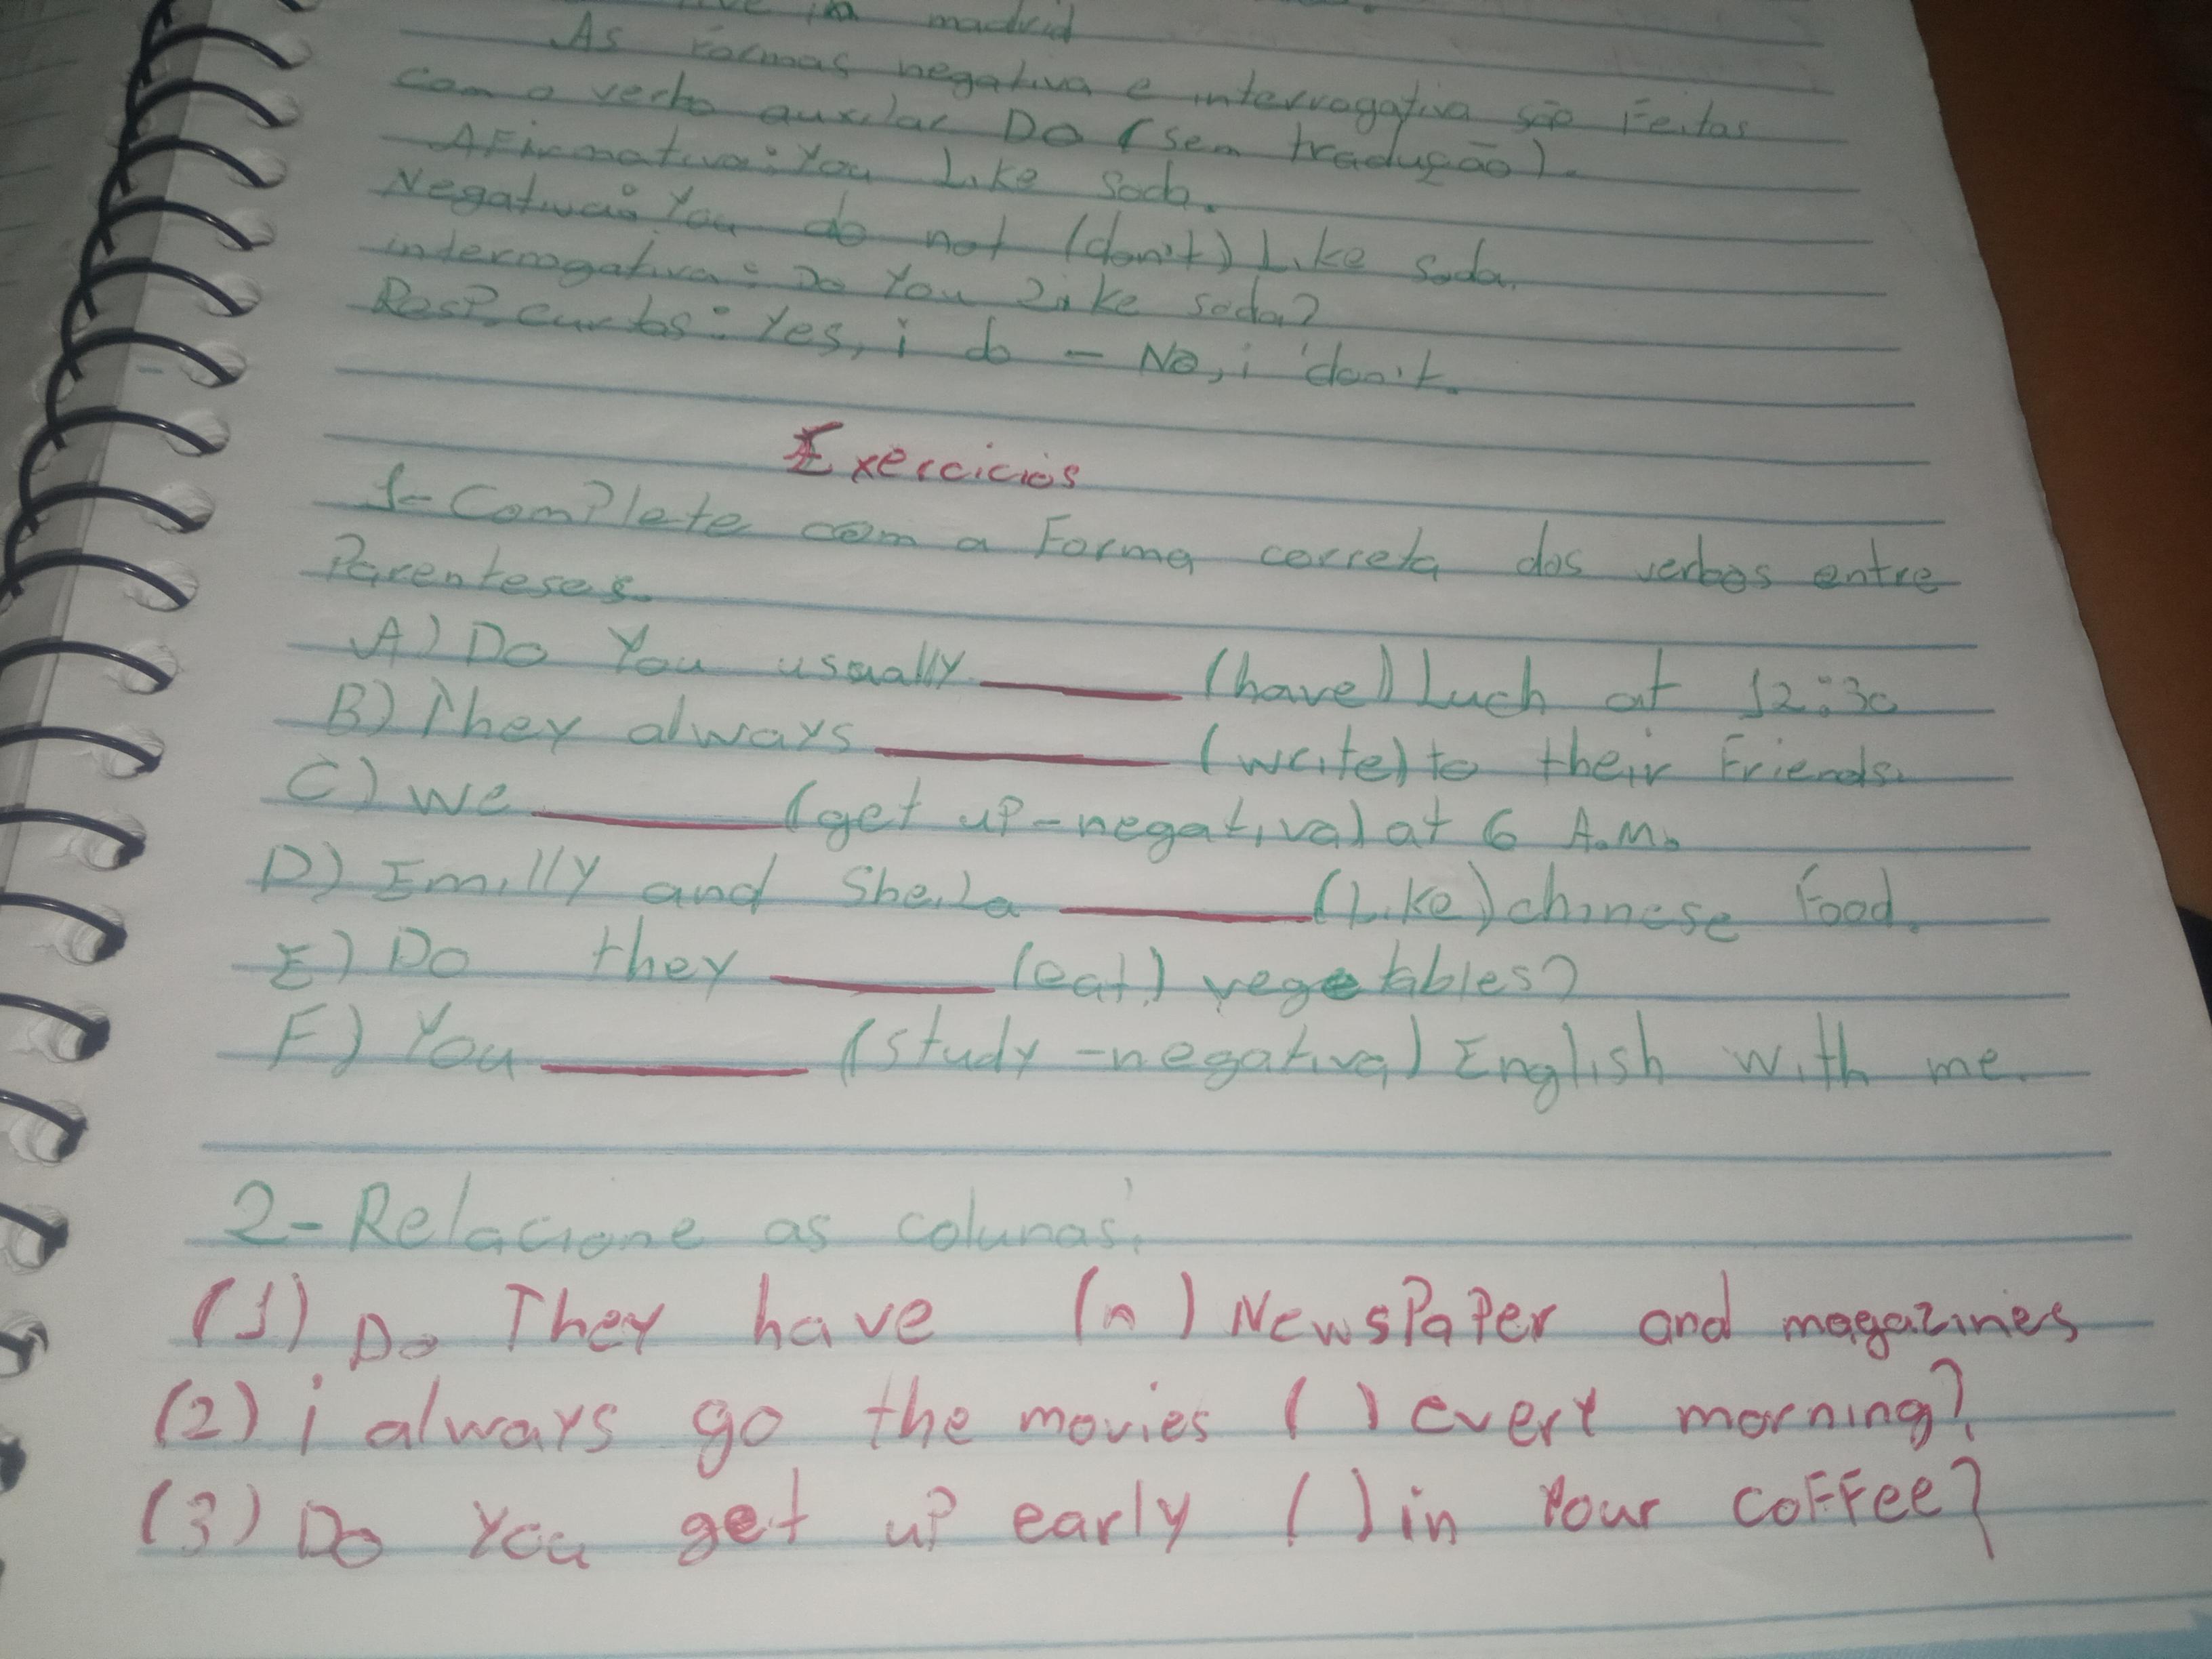 in madrid
As Formas negativa e interrogativa são Feitas
com o verbo auxilar DO (sem tradução).
AFirmativa: You Like soda.
Negativa: You do not (don't) Like soda.
interrogativa: Do You Like soda?
Resp. curtas: Yes, i do - No, i don't.
Exercicios
1- Complete com a Forma correta dos verbos entre
Parenteses.
A) Do You usually ______ (have) Luch at 12:30
B) They always ______ (write) to their Friends.
C) we ______ (get up-negativa) at 6 A.M.
D) Emilly and Sheila ______ (Like) chinese Food.
E) Do they ______ (eat) vegetables?
F) You ______ (study-negativa) English with me.
2- Relacione as colunas:
(1) Do They have (n ) NewsPaper and magazines
(2) i always go the movies ( ) evert morning?
(3) Do You get up early ( ) in Your coFFee?